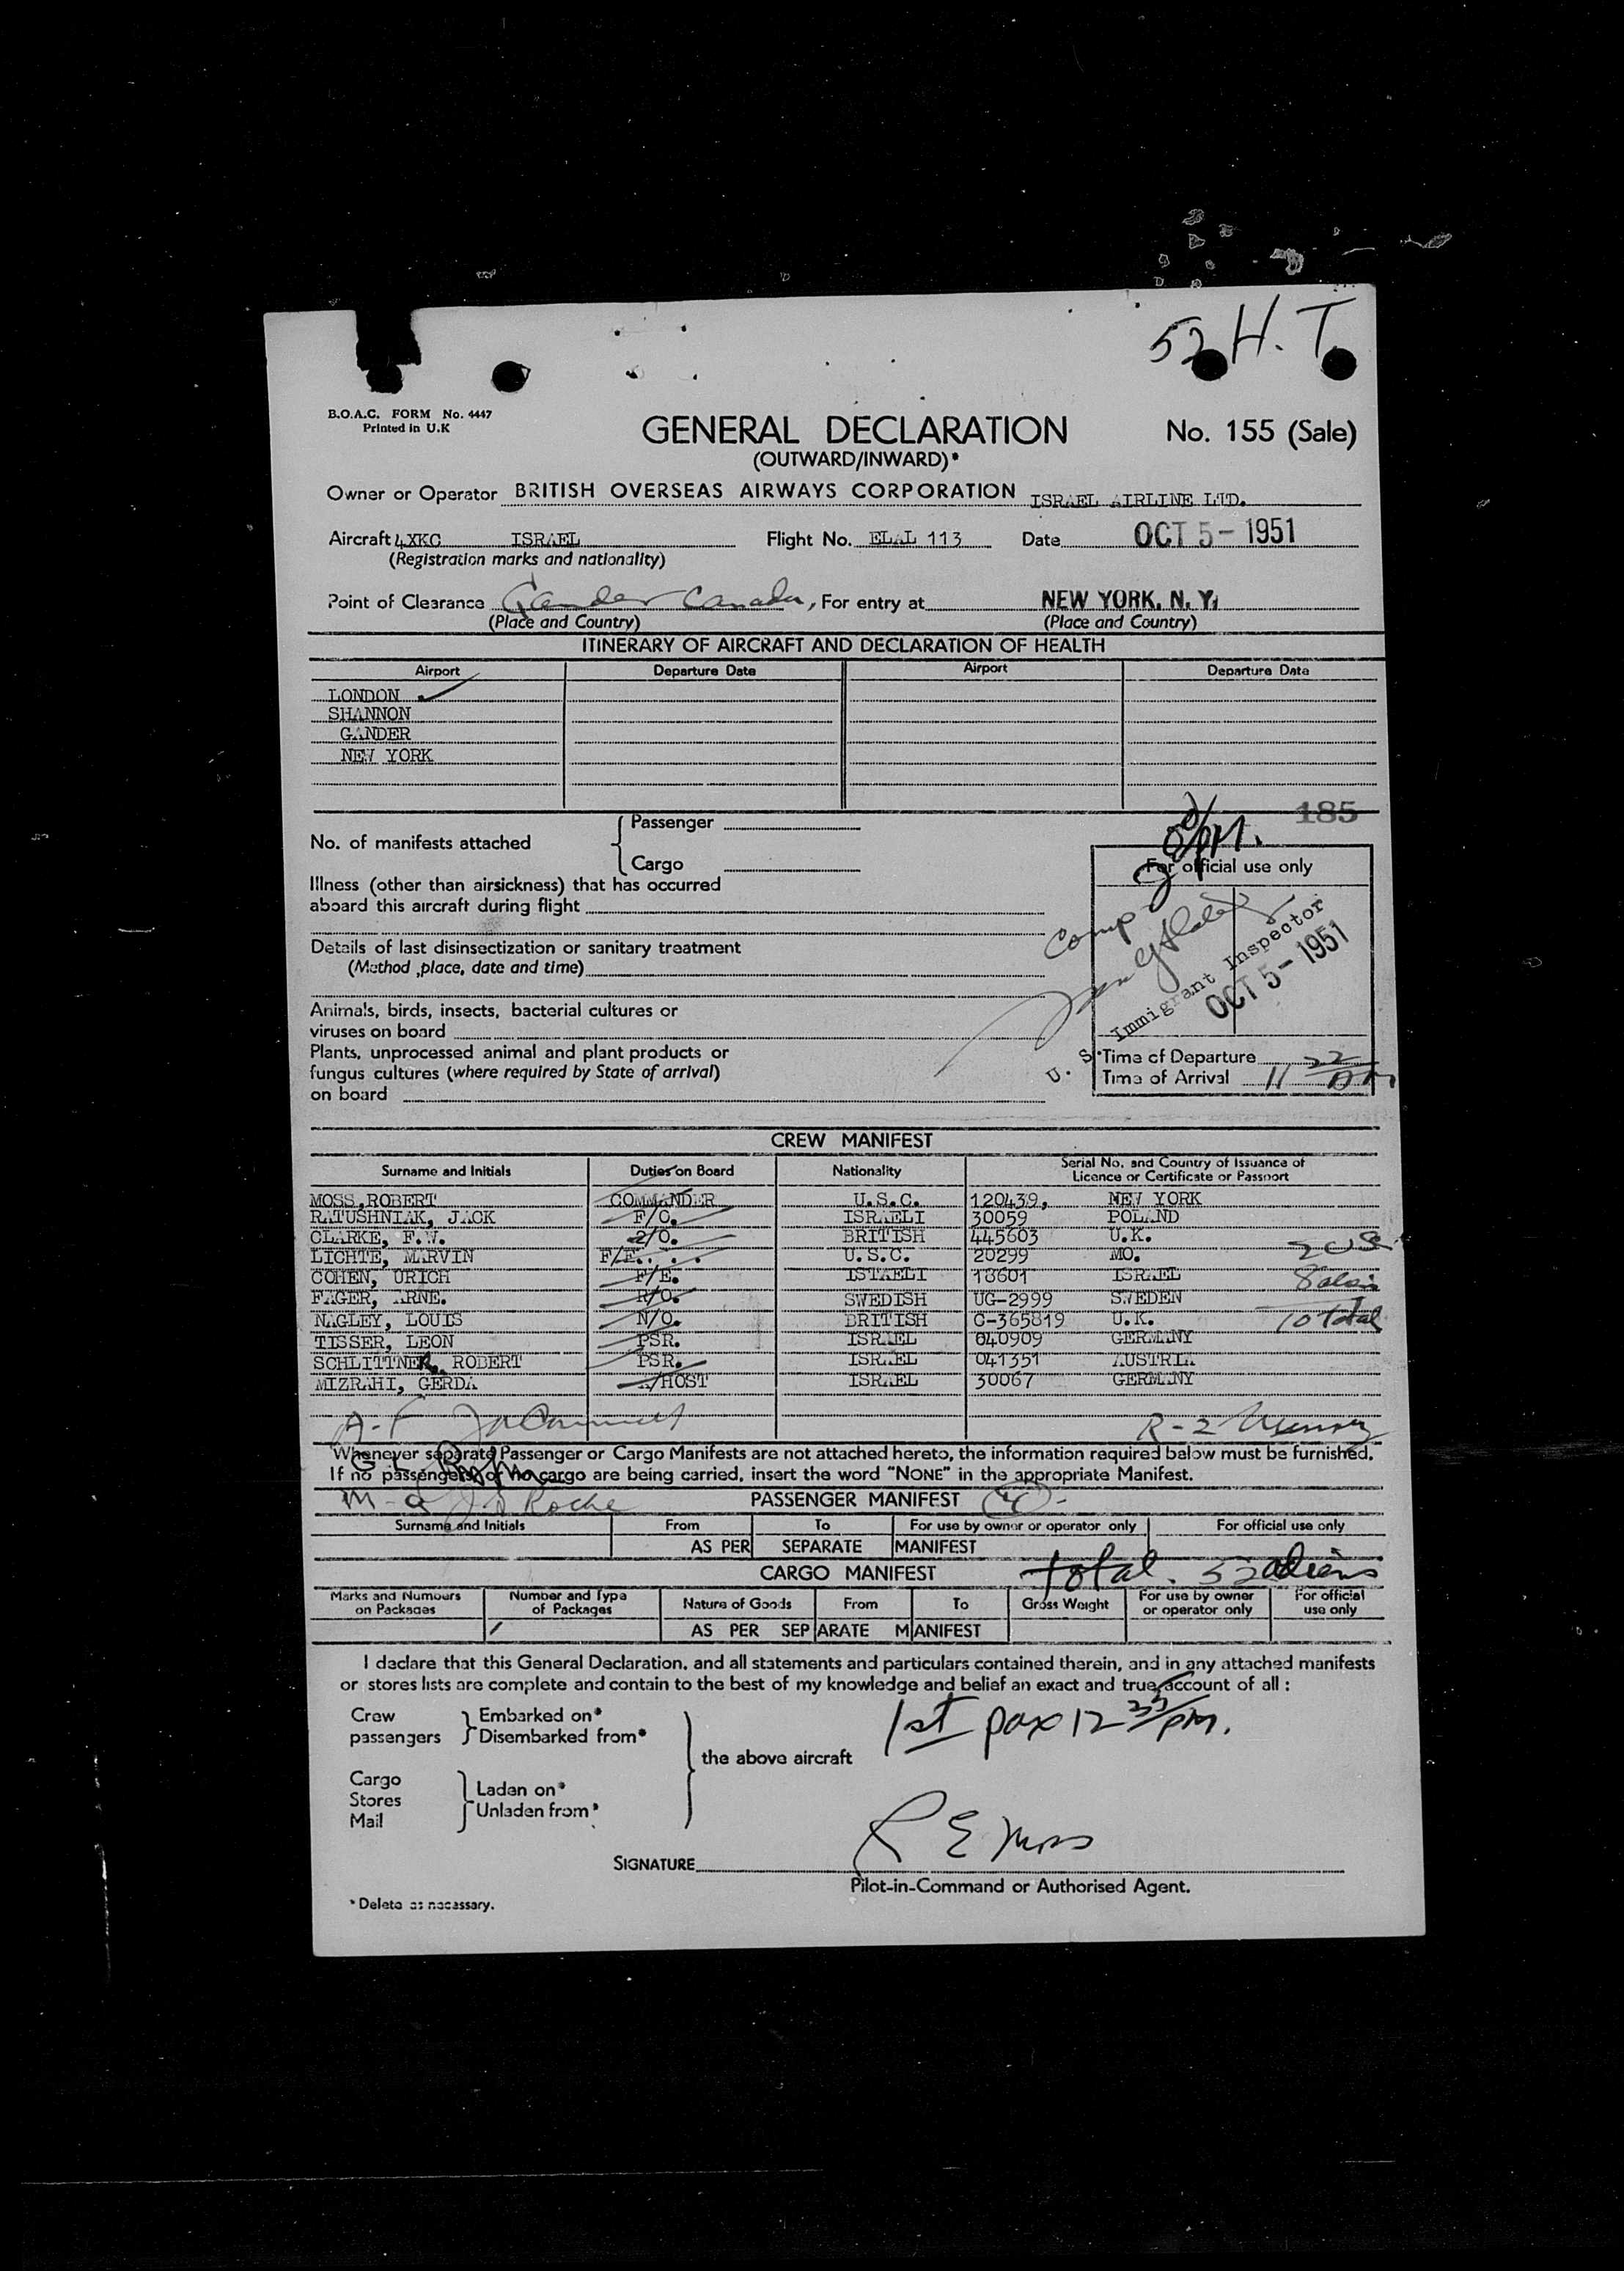 52 H. T.
B.O.A.C. FORM No. 4447
Printed in U.K
GENERAL DECLARATION
No. 155 (Sale)
(OUTWARD/INWARD)*
Owner or Operator BRITISH OVERSEAS AIRWAYS CORPORATION ISRAEL AIRLINE LTD.
Aircraft 4XKC ISRAEL Flight No. ELAL 113 Date OCT 5-1951
(Registration marks and nationality)
Point of Clearance Gander Canada, For entry at NEW YORK, N. Y.
(Place and Country) (Place and Country)
ITINERARY OF AIRCRAFT AND DECLARATION OF HEALTH
Airport Departure Date Airport Departure Date
LONDON
SHANNON
GANDER
NEW YORK
185
No. of manifests attached { Passenger
Cargo
For official use only
Illness (other than airsickness) that has occurred
aboard this aircraft during flight
Comp
Details of last disinsectization or sanitary treatment
(Method ,place, date and time)
U. S. Immigrant Inspector
OCT 5-1951
Animals, birds, insects, bacterial cultures or
viruses on board
Plants, unprocessed animal and plant products or
fungus cultures (where required by State of arrival)
on board
Time of Departure
Time of Arrival 11 22
CREW MANIFEST
Surname and Initials Duties on Board Nationality Serial No. and Country of Issuance of
Licence or Certificate or Passport
MOSS,ROBERT COMMANDER U.S.C. 120439, NEW YORK
RATUSHNIAK, JACK F/O. ISRAELI 30059 POLAND
CLARKE, F.W. 2/O. BRITISH 445603 U.K.
LICHTE, MARVIN F/E. . . . U.S.C. 20299 MO. 2 USC
COHEN, URICH F/E. ISTAELI 18601 ISRAEL 8 aliens
FAGER, ARNE. R/O. SWEDISH UG-2999 SWEDEN
NAGLEY, LOUIS N/O. BRITISH C-365819 U.K. 10 total
TISSER, LEON PSR. ISRAEL 040909 GERMANY
SCHLITTNER, ROBERT PSR. ISRAEL 041351 AUSTRIA
MIZRAHI, GERDA A/HOST ISRAEL 30067 GERMANY
A-F R-2
Whenever separate Passenger or Cargo Manifests are not attached hereto, the information required below must be furnished.
If no passengers or no cargo are being carried, insert the word "NONE" in the appropriate Manifest.
G-L
M-Q Roche
PASSENGER MANIFEST
Surname and Initials From To For use by owner or operator only For official use only
AS PER SEPARATE MANIFEST
CARGO MANIFEST total. 52 aliens
Marks and Numbers on Packages Number and Type of Packages Nature of Goods From To Gross Weight For use by owner or operator only For official use only
AS PER SEPARATE MANIFEST
I declare that this General Declaration, and all statements and particulars contained therein, and in any attached manifests
or stores lists are complete and contain to the best of my knowledge and belief an exact and true account of all :
Crew
passengers } Embarked on*
Disembarked from*
1st pax 12 35 pm.
the above aircraft
Cargo
Stores
Mail } Laden on*
Unladen from*
R E Moss
SIGNATURE
Pilot-in-Command or Authorised Agent.
* Delete as necessary.